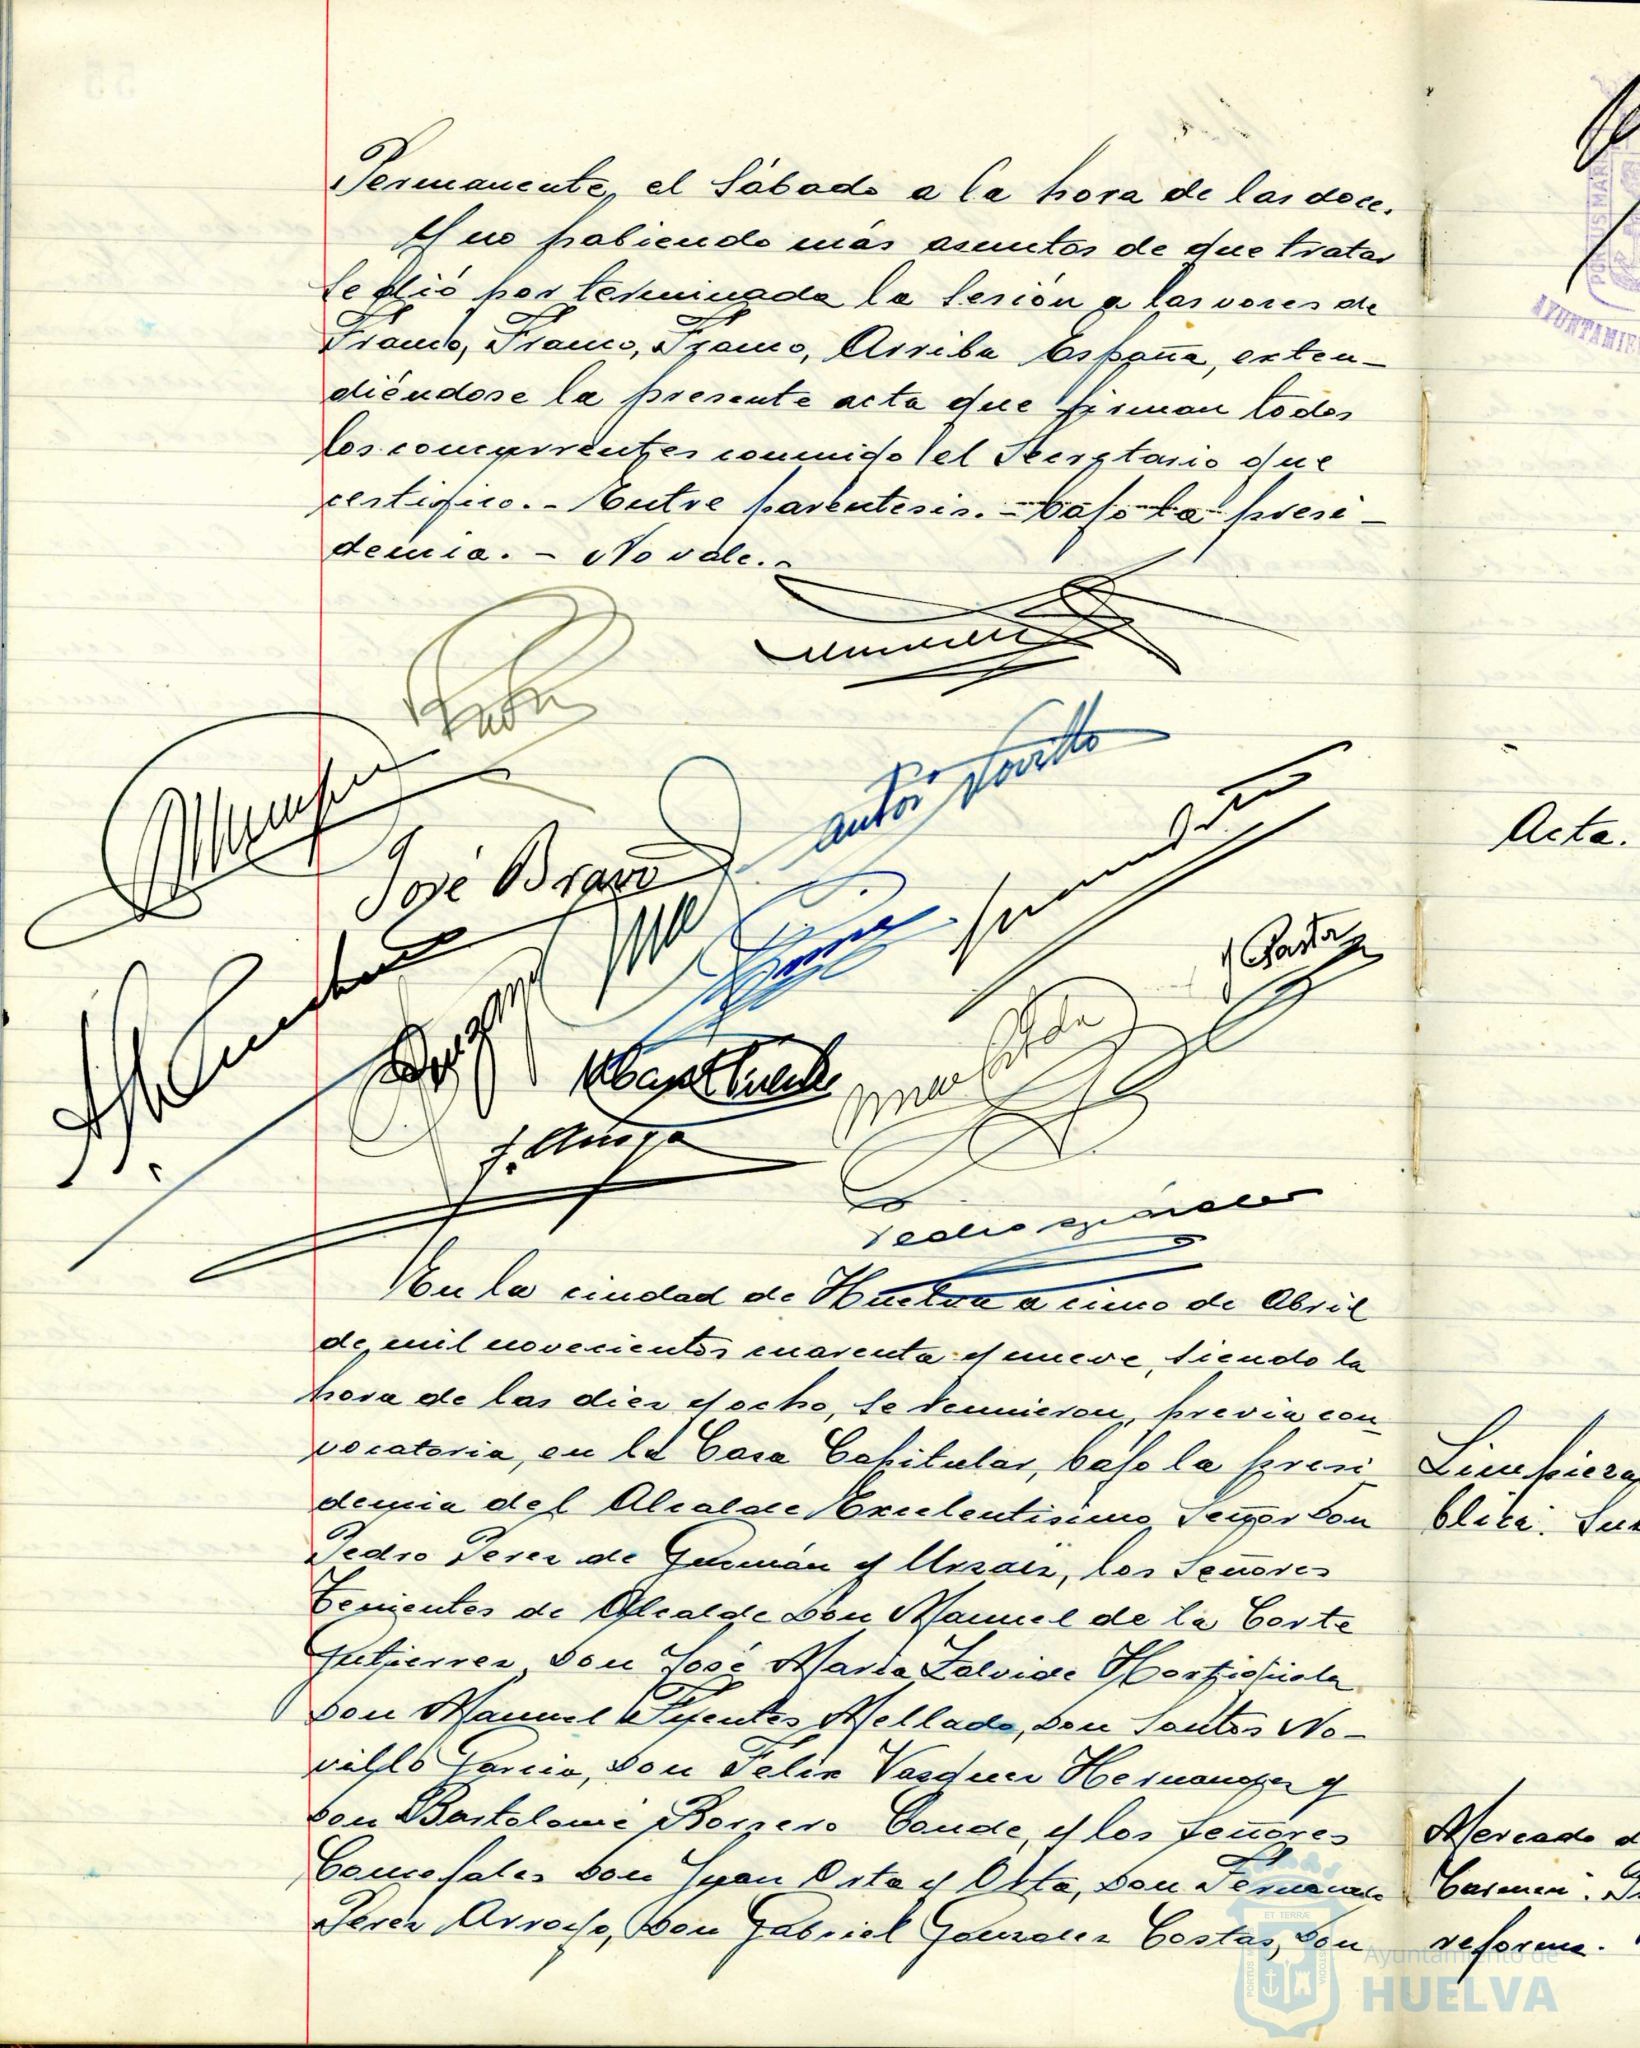 Permanente, el Sábado a la hora de las doce.
Y no habiendo más asuntos de que tratar
se dió por terminada la sesión a las voces de
Franco, Franco, Franco, Arriba España, exten-
diéndose la presente acta que firman todos
los concurrentes conmigo el Secretario que
certifico. - Entre parentesis. - bajo la presi-
dencia. - No vale. -
José Bravo
J Pastor
En la ciudad de Huelva a cinco de Abril
de mil novecientos cuarenta y nueve, siendo la
hora de las diez y ocho, se reunieron, previa con-
vocatoria, en la Casa Capitular, bajo la presi
dencia del Alcalde Excelentisimo Señor Don
Pedro Perez de Guzmán y Urzaiz, los Señores
Tenientes de Alcalde Don Manuel de la Corte
Gutierrez, Don José Maria Zalvide Hortigüela
Don Manuel Fuentes Mellado, Don Santos No-
villo Garcia, Don Felix Vazquez Hernandez y
Don Bartolomé Borrero Conde, y los Señores
Concejales Don Juan Orta y Orta, Don Fernando
Perez Arroyo, Don Gabriel Gonzalez Costas, Don
Acta.
Limpieza
blica. Su
Mercado d
Carmen.
reforma.
AYUNTAMIE
PORTUS MAR
Ayuntamiento de
HUELVA